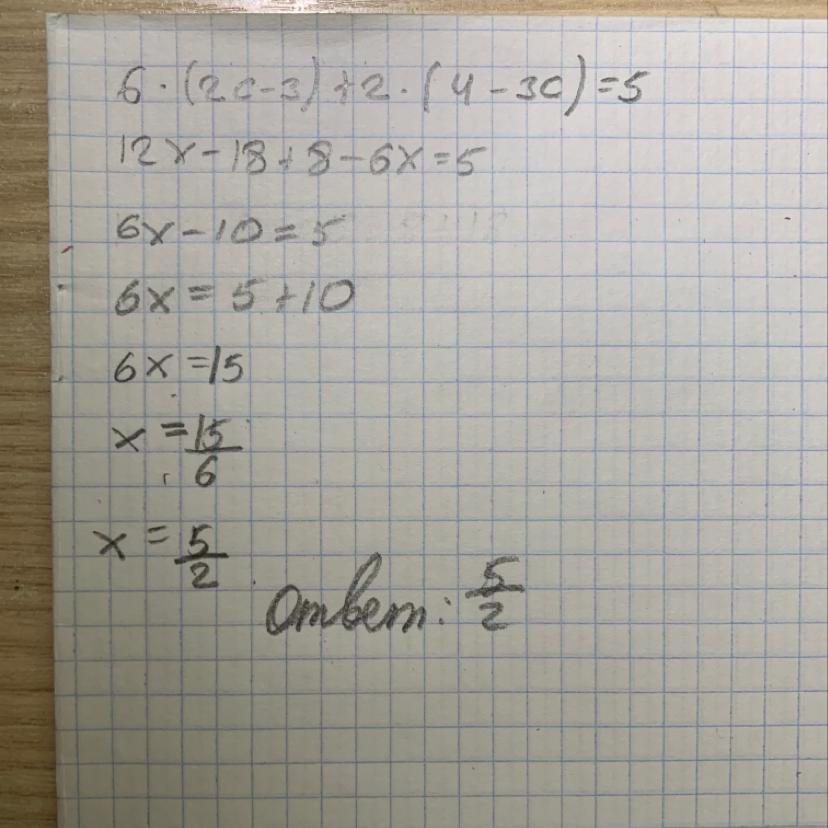 6·(2c-3)+2·(4-3c)=5
12x-18+8-6x=5
6x-10=5
6x=5+10
6x=15
x=15/6
x=5/2
Ответ: 5/2